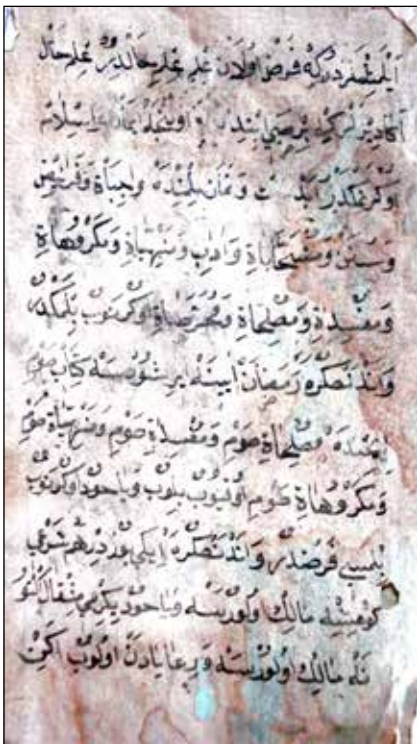 ايلمشلردركه فرض اولان علم علم حالدر علم حال
اكا ديرلركه بر صبي اوسلام
اوكرنمكدر آبدست ونماز بلمنده واجباة وفرايض
وسنن ومستحاباة وادب ومنهياة ومكروهاة
ومفسدة ومصلحاة اوكرنوب بلمكدر
واندنصكره رمضان آيينه ايرشورسه كتاب صوم
مصلحاة صوم ومفسداة صوم ومنهياة صوم
ومكروهاة صوم اوقيوب بلوب وياحود اوكرنوب
بلمسي فرضدر واندنصكره ايكي يوز درهم شرعي
كومشه مالك اولورسه وياحود يكرمي مثقال التو
نه مالك اولورسه ورعايادن اولوب اكن